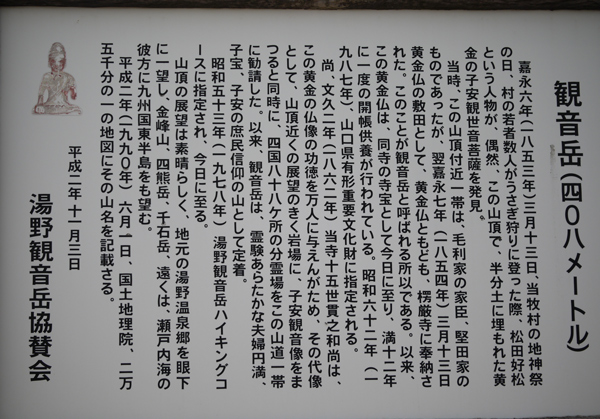 観音岳(四〇八メートル)
嘉永六年(一八五三年)三月十三日、当牧村の地神祭
の日、村の若者数人がうさぎ狩りに登った際、松田好松
という人物が、偶然、この山頂で、半分土に埋もれた黄
金の子安観世音菩薩を発見。
当時、この山頂付近一帯は、毛利家の家臣、堅田家の
ものであったが、翌嘉永七年(一八五四年)三月十三日
黄金仏の敷田として、黄金仏ともども、楞厳寺に奉納さ
れた。このことが観音岳と呼ばれる所以である。以来、
この黄金仏は、同寺の寺宝として今日に至り、満十二年
に一度の開帳供養が行われている。昭和六十二年(一
九八七年)、山口県有形重要文化財に指定される。
尚、文久二年(一八六二年)当寺十五世貫之和尚は、
この黄金の仏像の功徳を万人に与えんがため、その代像
として、山頂近くの展望のきく岩場に、子安観音像をま
つると同時に、四国八十八ケ所の分霊場をこの山道一帯
に勧請した。以来、観音岳は、霊験あらたかな夫婦円満、
子宝、子安の庶民信仰の山として定着。
昭和五十三年(一九七八年)湯野観音岳ハイキングコ
ースに指定され、今日に至る。
山頂の展望は素晴らしく、地元の湯野温泉郷を眼下
に一望し、金峰山、四熊岳、千石岳、遠くは、瀬戸内海の
彼方に九州国東半島をも望む。
平成二年(一九九〇年)六月一日、国土地理院、二万
五千分の一の地図にその山名を記載さる。
平成二年十一月三日
湯野観音岳協賛会